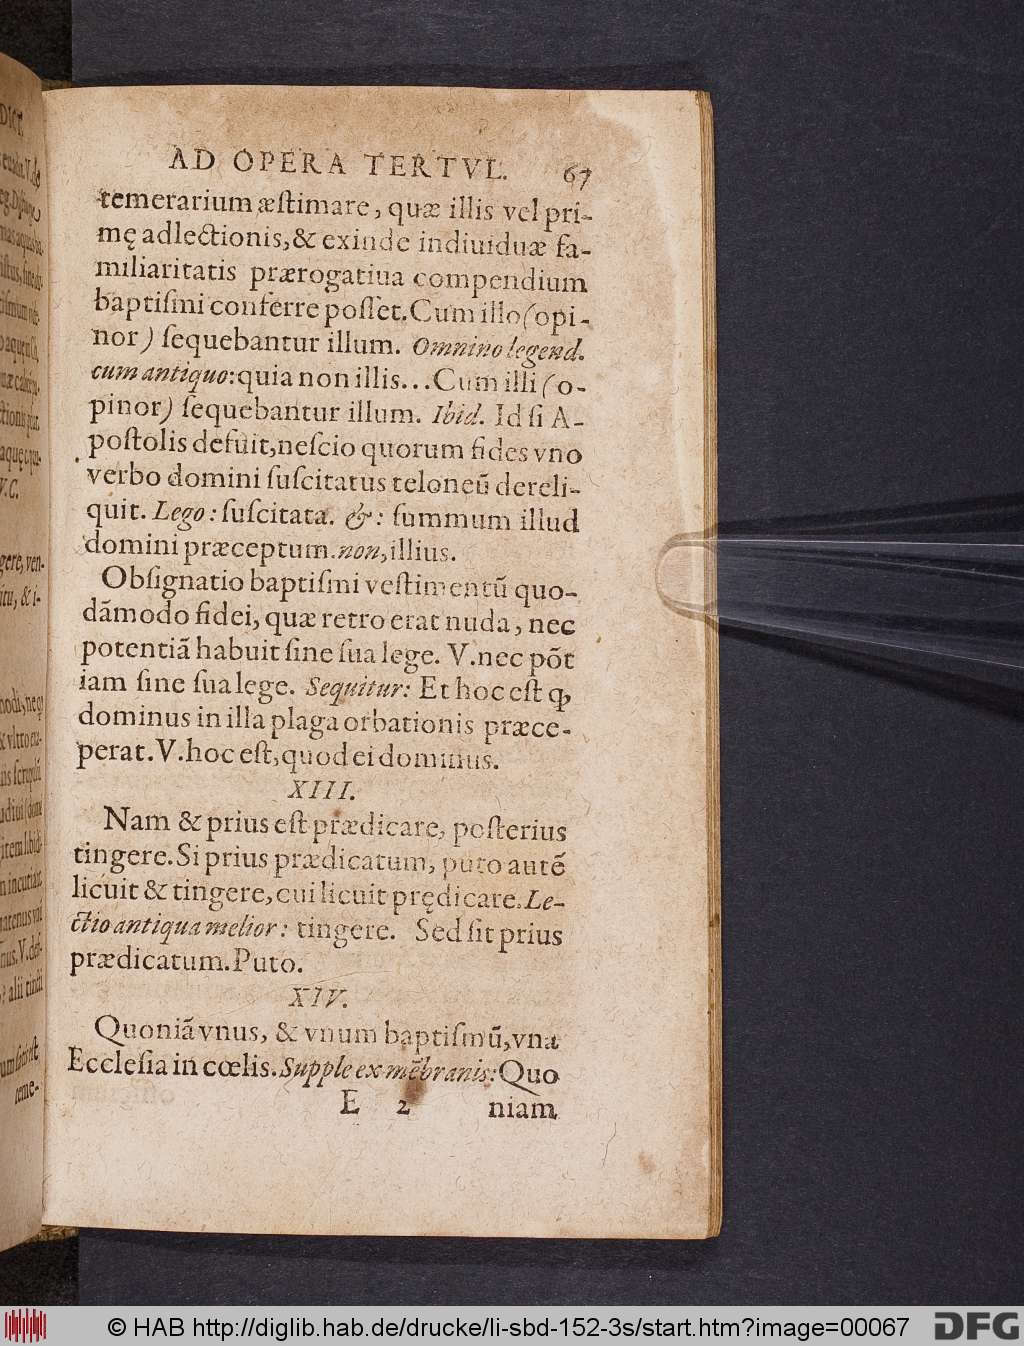 AD OPERA TERTVL. 67
temerarium æstimare, quæ illis vel pri-
mę adlectionis, & exinde indiuiduæ fa-
miliaritatis prærogatiua compendium
baptiſmi conferre poſſet. Cum illo (opi-
nor) ſequebantur illum. Omnino legend.
cum antiquo: quia non illis... Cum illi (o-
pinor) ſequebantur illum. Ibid. Id ſi A-
poſtolis defuit, neſcio quorum fides vno
verbo domini ſuſcitatus teloneū dereli-
quit. Lego: ſuſcitata. &: ſummum illud
domini præceptum. non, illius.
Obſignatio baptiſmi veſtimentū quo-
dāmodo fidei, quæ retro erat nuda, nec
potentiā habuit ſine ſua lege. V. nec pōt
iam ſine ſua lege. Sequitur: Et hoc eſt ꝙ
dominus in illa plaga orbationis præce-
perat. V. hoc eſt, quod ei dominus.
XIII.
Nam & prius eſt prædicare, poſterius
tingere. Si prius prædicatum, puto autē
licuit & tingere, cui licuit prędicare. Le-
ctio antiqua melior: tingere. Sed ſit prius
prædicatum. Puto.
XIV.
Quoniā vnus, & vnum baptiſmū, vna
Eccleſia in cœlis. Supple ex mēbranis: Quo
E 2 niam
© HAB http://diglib.hab.de/drucke/li-sbd-152-3s/start.htm?image=00067
DFG